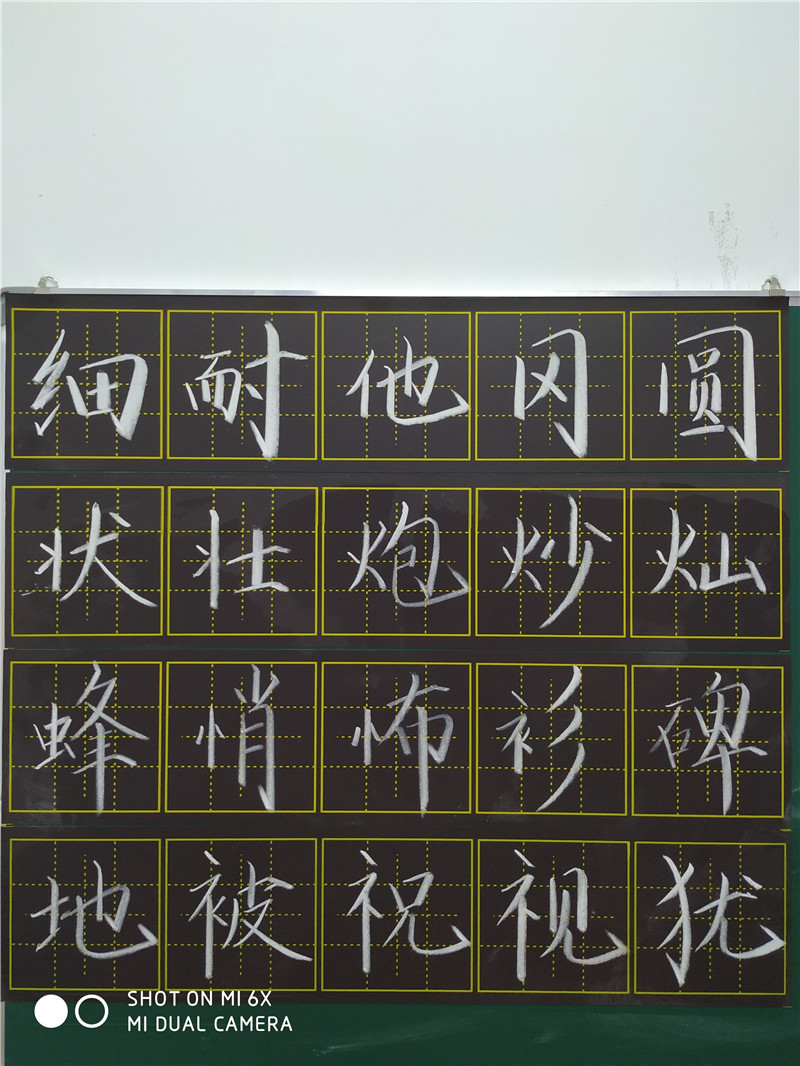 细耐他冈圆
状壮炮炒灿
蜂悄怖衫碑
地被祝视犹
SHOT ON MI 6X
MI DUAL CAMERA